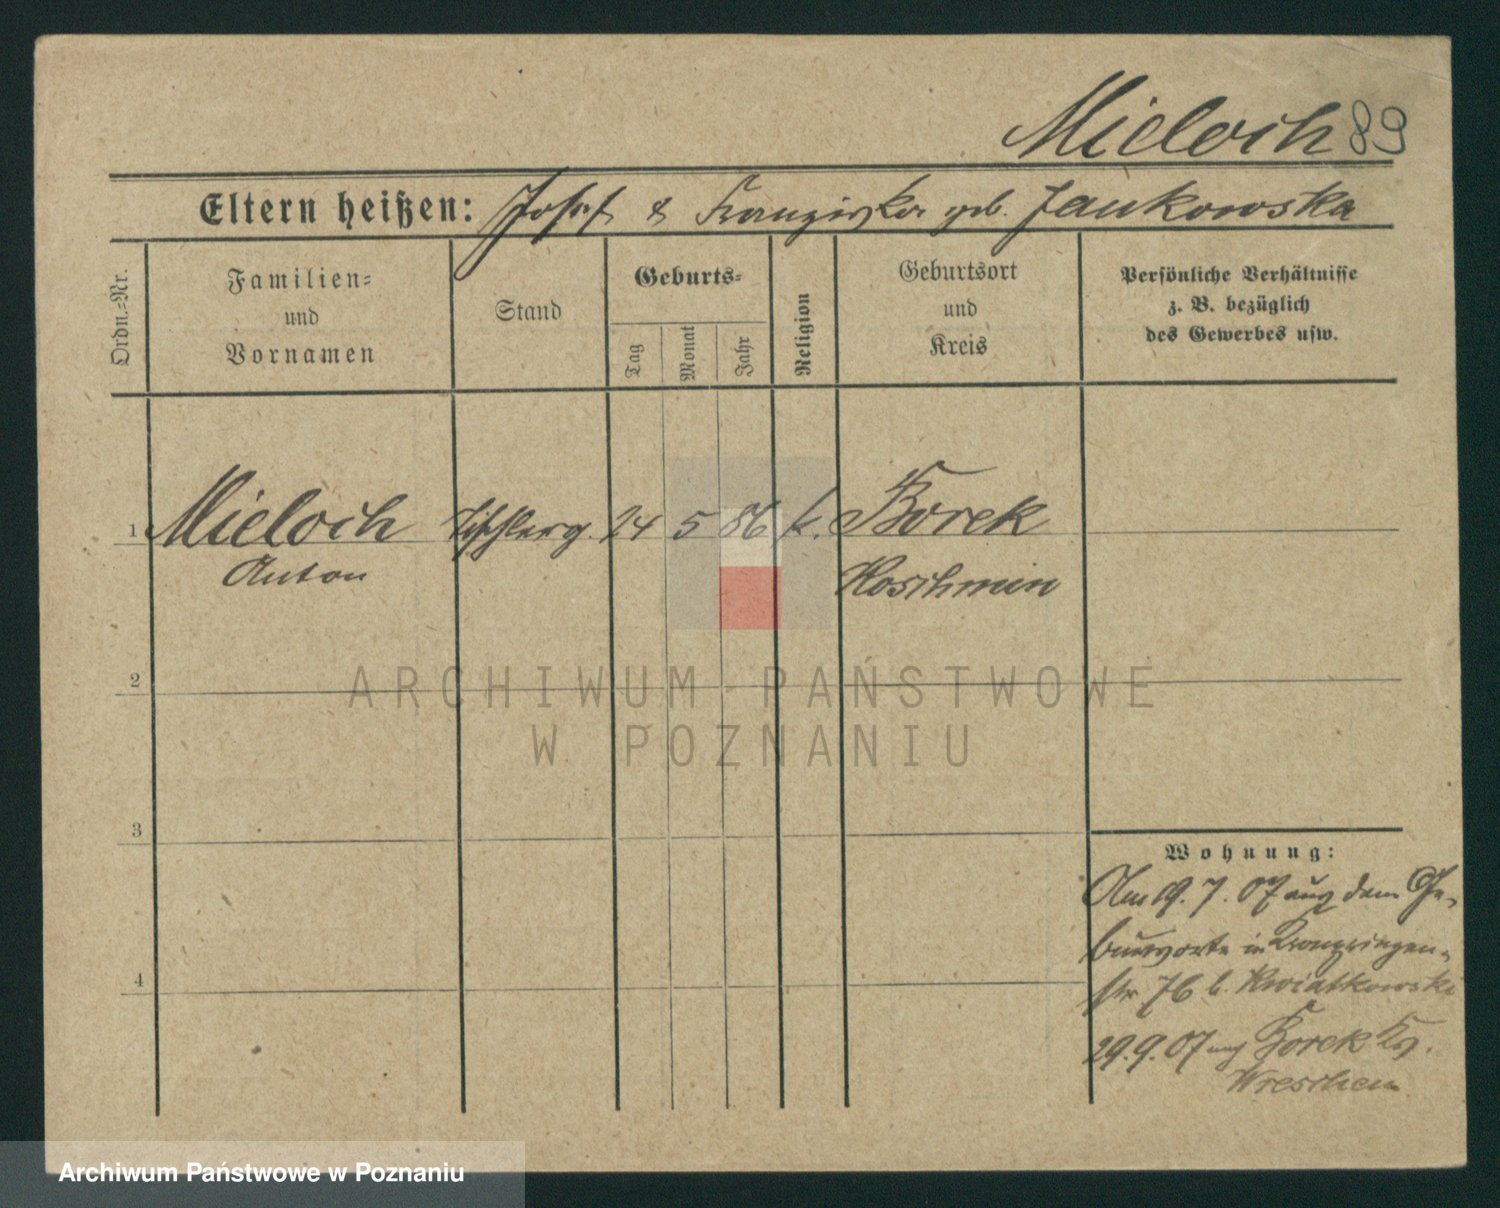 Mieloch 89
Eltern heißen: Josef & Franziska geb. Jankowska
Ordn.-Nr.
Familien-
und
Vornamen
Stand
Geburts-
Tag
Monat
Jahr
Religion
Geburtsort
und
Kreis
Persönliche Verhältnisse
z. B. bezüglich
des Gewerbes usw.
1 Mieloch Tischlerg. 24 5 86 k. Borek
Anton Koschmin
2
ARCHIWUM PAŃSTWOWE
W POZNANIU
3
Wohnung:
Am 19. 7. 07 aus dem Ge-
burtsorte in Kronprinzen-
str 76 b. Kwiatkowski
4
29.9.07 nach Borek Kr.
Wreschen
Archiwum Państwowe w Poznaniu